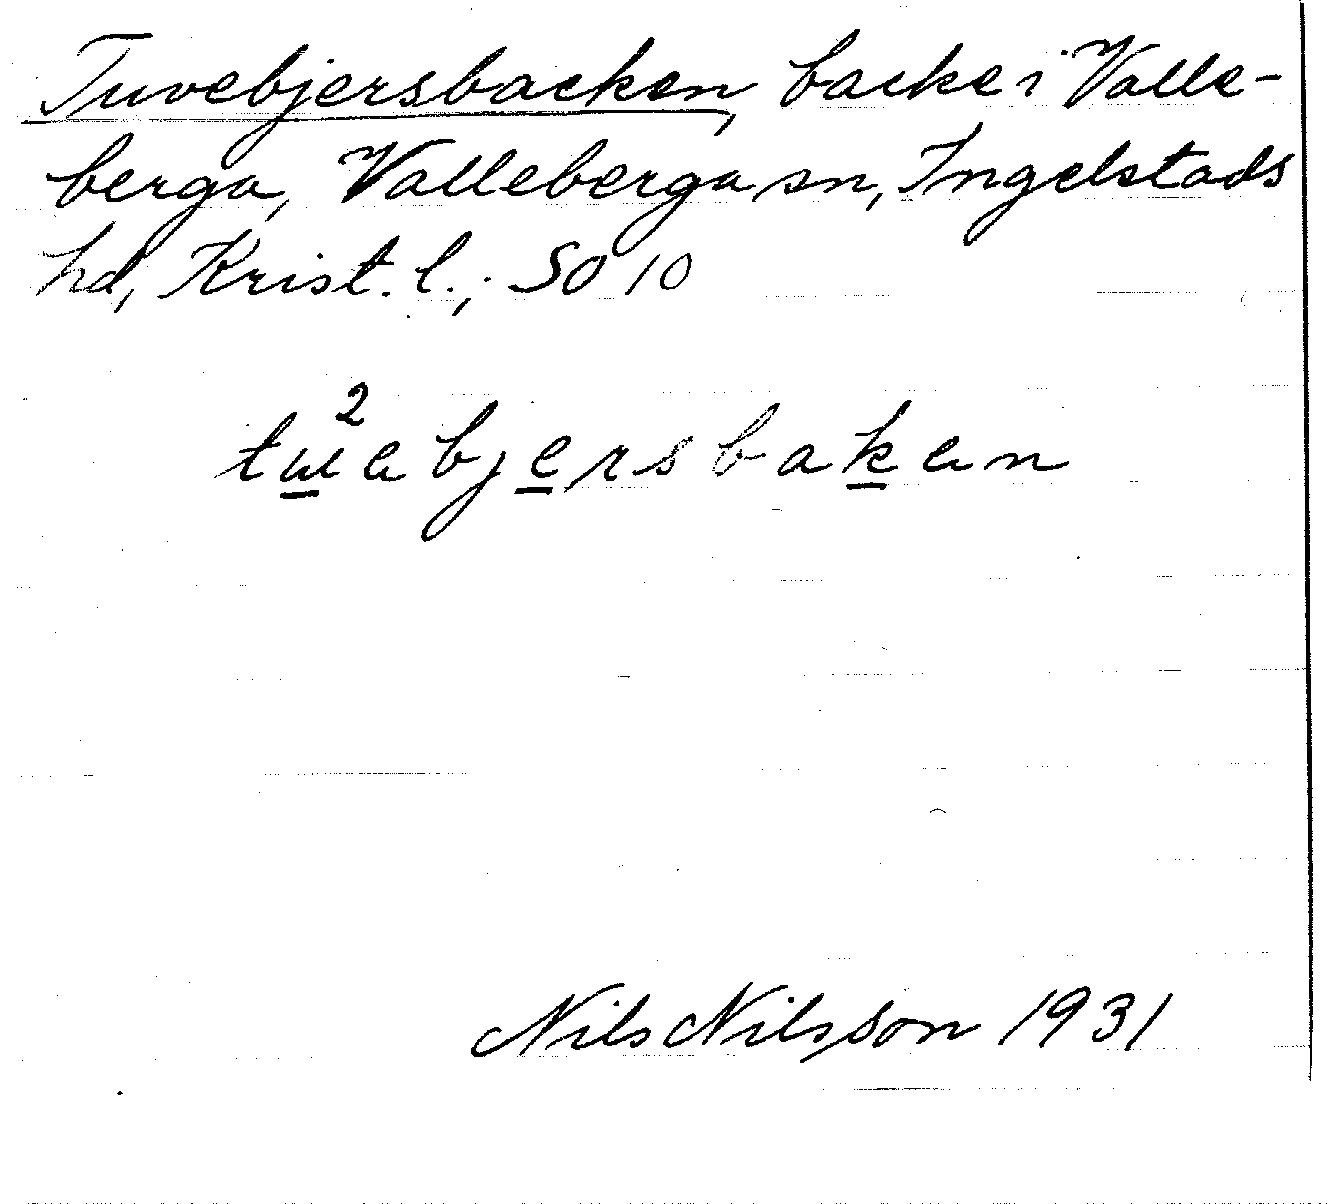 Tuvebjersbacken, backe i Valle-
berga, Valleberga sn, Ingelstads
hd, Krist. l.; SO 10
2
tuebjersbaken
Nils Nilsson 1931